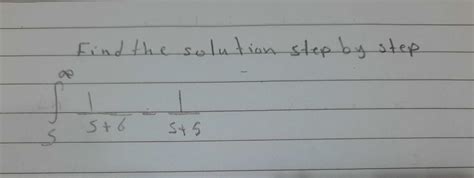 Find the solution step by step
∞
∫ 1/(s+6) - 1/(s+5)
s